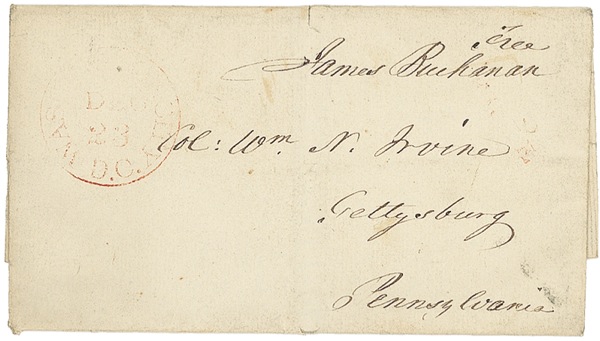 Free
James Buchanan
DEC
23
D.C.
Col: Wm N. Irvine
Gettysburg
Pennsylvania